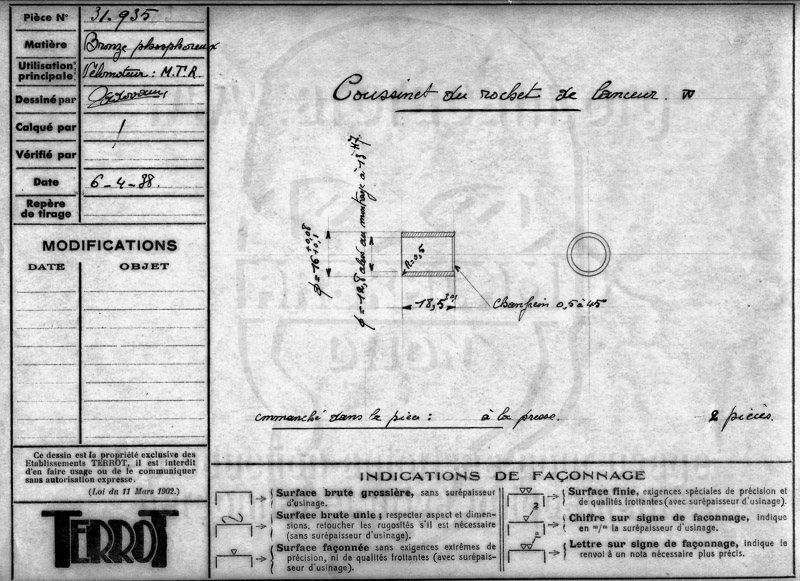 Pièce N° 31.935
Matière Bronze phosphoreux
Utilisation principale Vélomoteur : M.T.R.
Dessiné par
Calqué par /
Vérifié par
Date 6-4-38.
Repère de tirage
MODIFICATIONS
DATE OBJET
Ce dessin est la propriété exclusive des
Etablissements TERROT, il est interdit
d'en faire usage ou de le communiquer
sans autorisation expresse.
(Loi du 11 Mars 1902.)
TERROT
Coussinet du rochet de lanceur.
ϕ = 16 +0,08 +0,1
ϕ = 12,8 alésé au montage à 13 H7.
R=0,5
18,5
Chanfrein 0,5 à 45°
emmanché dans la pièce : à la presse.
2 pièces.
INDICATIONS DE FAÇONNAGE
Surface brute grossière, sans surépaisseur
d'usinage.
Surface brute unie ; respecter aspect et dimen-
sions, retoucher les rugosités s'il est nécessaire
(sans surépaisseur d'usinage).
Surface façonnée sans exigences extrêmes de
précision, ni de qualités frottantes (avec surépais-
seur d'usinage).
Surface finie, exigences spéciales de précision et
de qualités frottantes (avec surépaisseur d'usinage).
Chiffre sur signe de façonnage, indique
en m/m la surépaisseur d'usinage.
Lettre sur signe de façonnage, indique le
renvoi à un nota nécessaire plus précis.